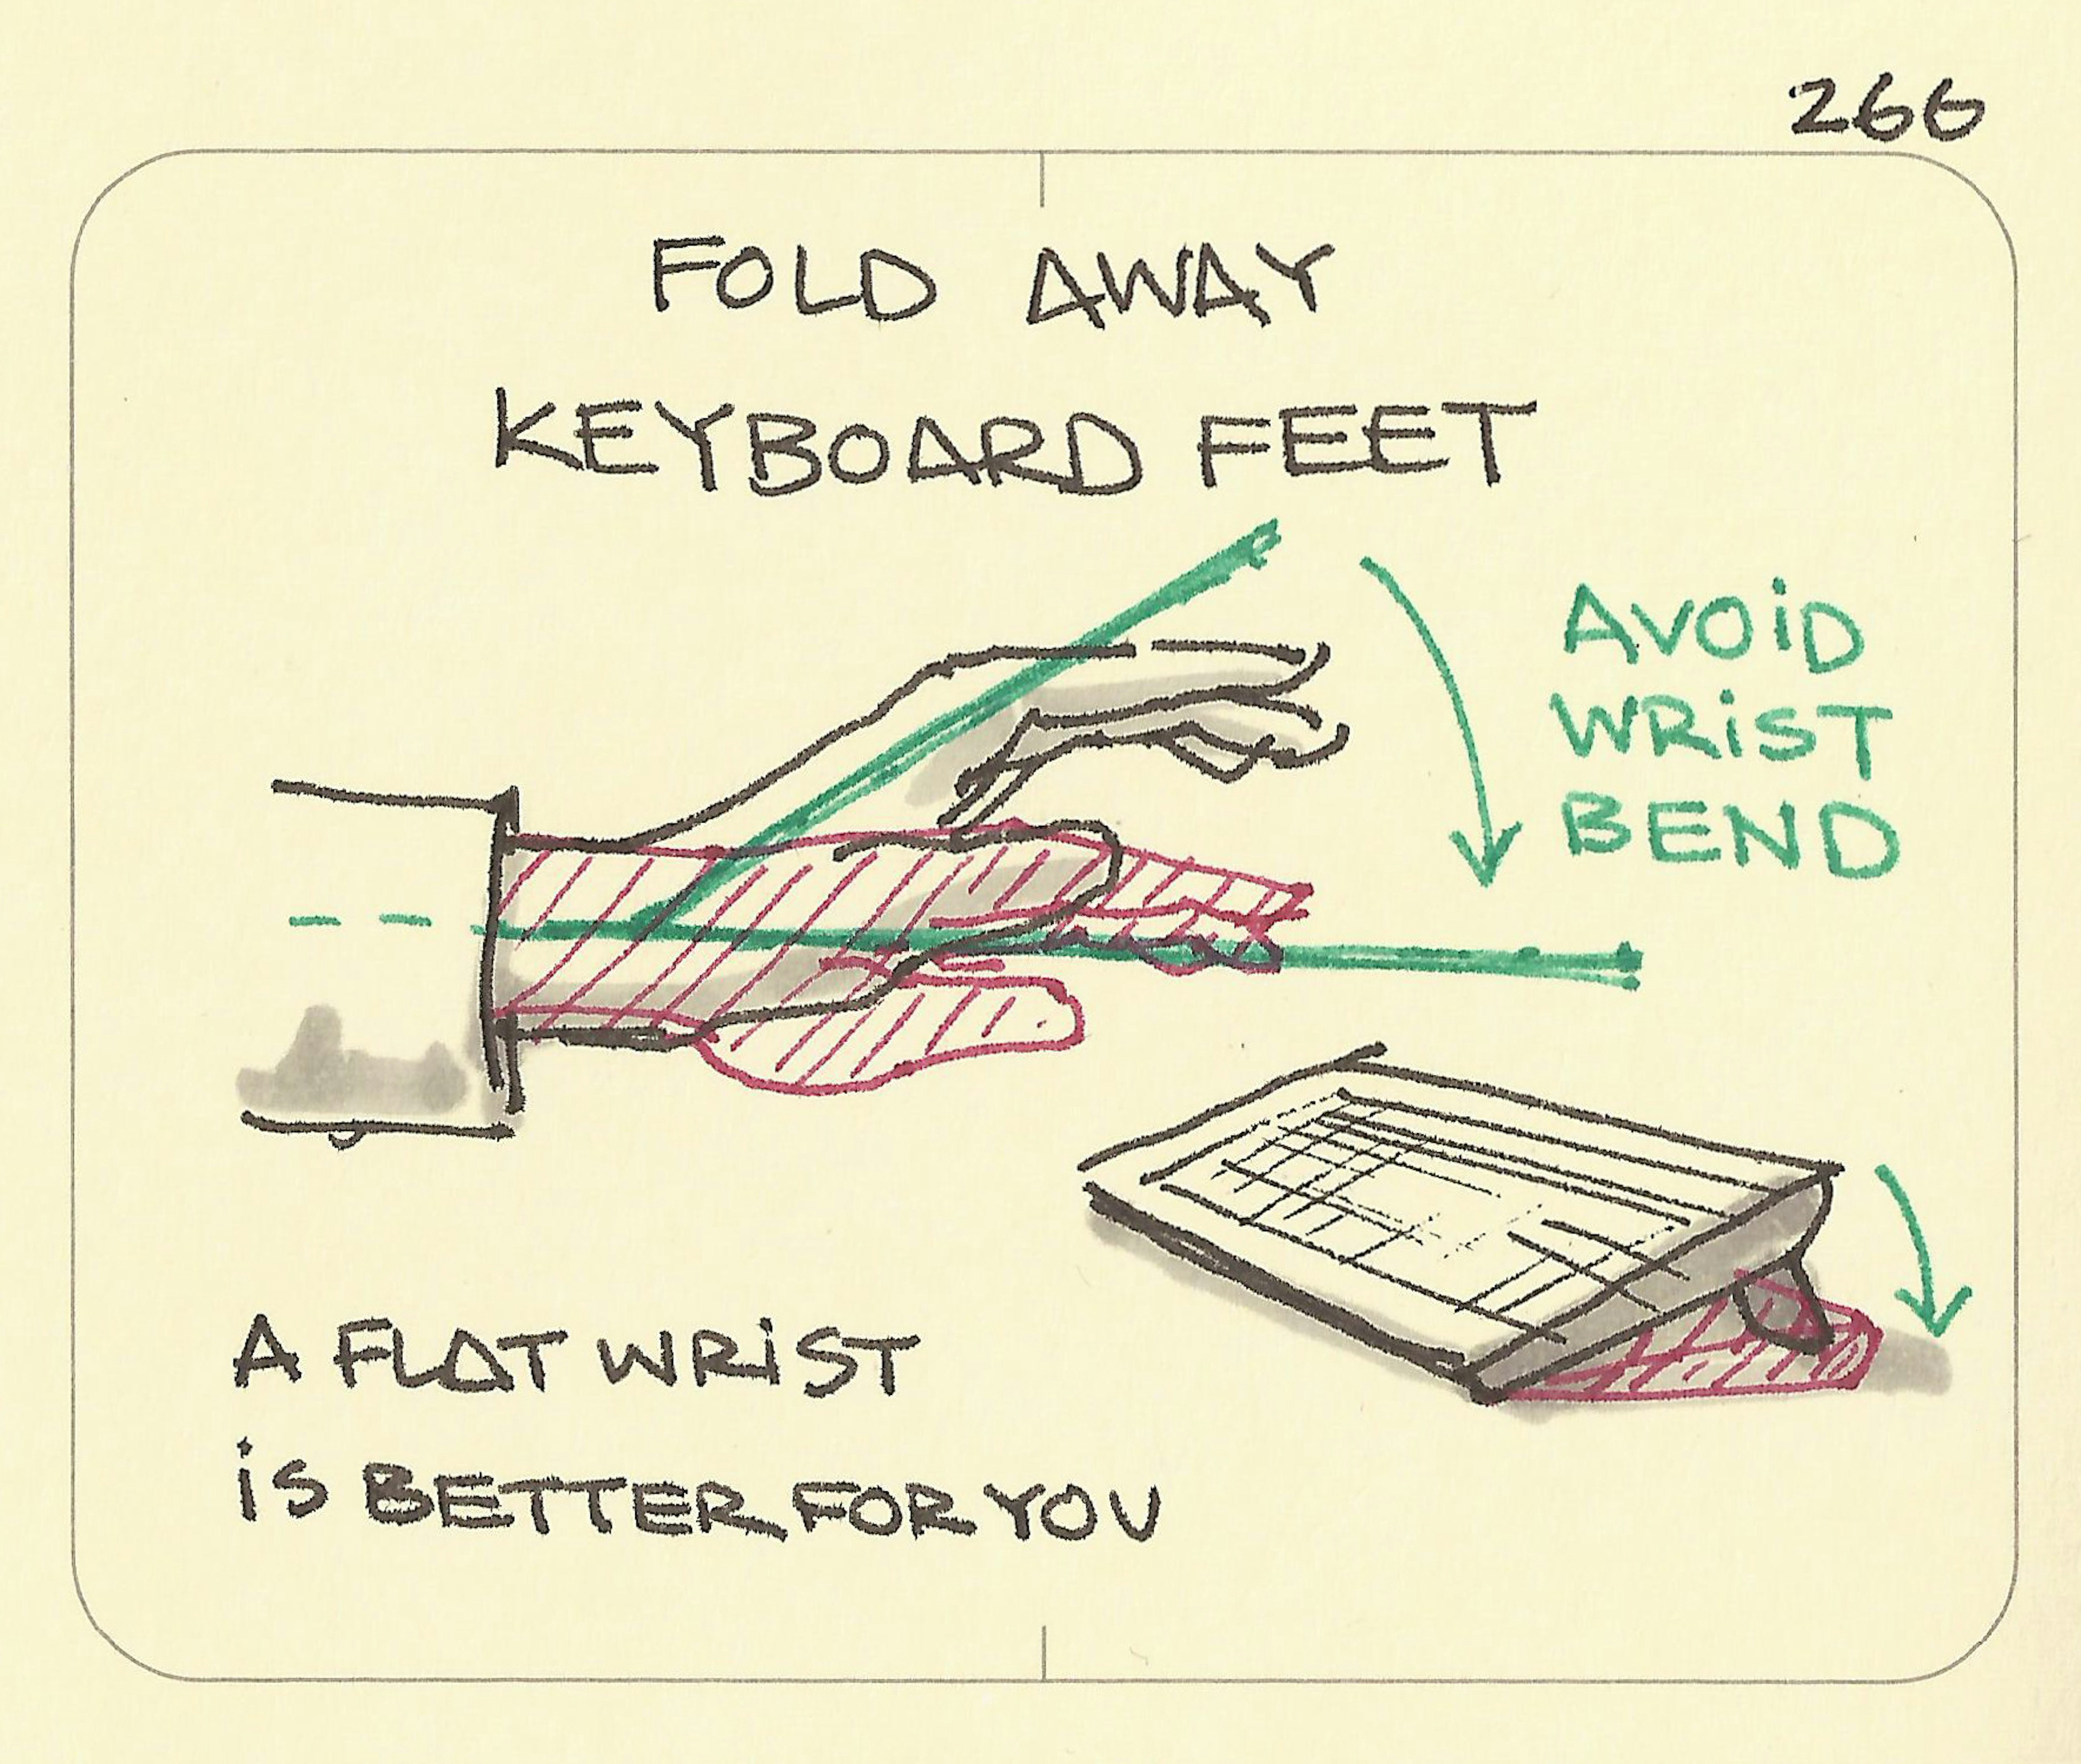 266
FOLD AWAY
KEYBOARD FEET
AVOiD
WRiST
BEND
A FLAT WRiST
iS BETTER FOR YOU